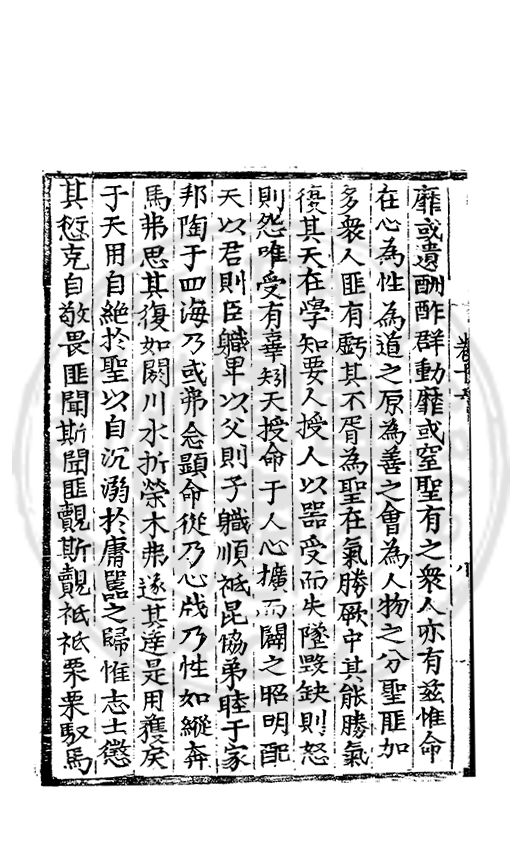 靡或遺酬酢群動靡或窒聖有之衆人亦有兹惟命
在心為性為道之原為善之會為人物之分聖匪加
多衆人匪有虧其不胥為聖在氣勝厥中其能勝氣
復其天在學知要人授人以器受而失墜毀缺則怒
則怨唯受有辜矧天授命于人心擴而闢之昭明配
天以君則臣職畢以父則子職順祗昆恊弟睦于家
邦陶于四海乃或弗念顯命從乃心戕乃性如縱奔
馬弗思其復如閼川水折榮木弗遂其達是用獲戾
于天用自絶於聖以自沉溺於庸嚚之歸惟志士懲
其愆克自敬畏匪聞斯聞匪覿斯覿祗祗栗栗馭馬